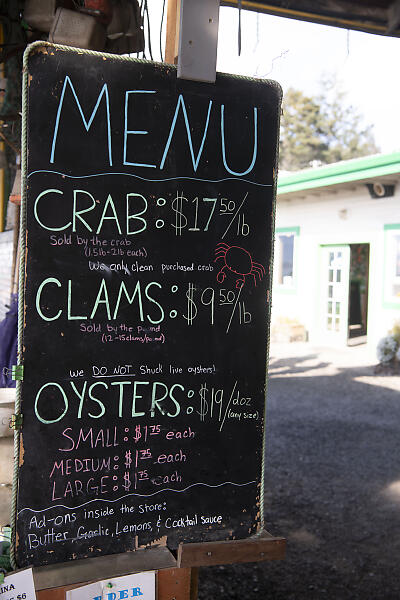 MENU
CRAB: $17 50/lb
Sold by the crab
(1.5lb-2lb each)
We only clean purchased crab
CLAMS: $9 50/lb
Sold by the pound
(12-15 clams/pound)
We DO NOT Shuck live oysters!
OYSTERS: $19/doz
(any size)
SMALL: $1 75 each
MEDIUM: $1 75 each
LARGE: $1 75 each
Ad-ons inside the store:
Butter, Garlic, Lemons, & Cocktail sauce